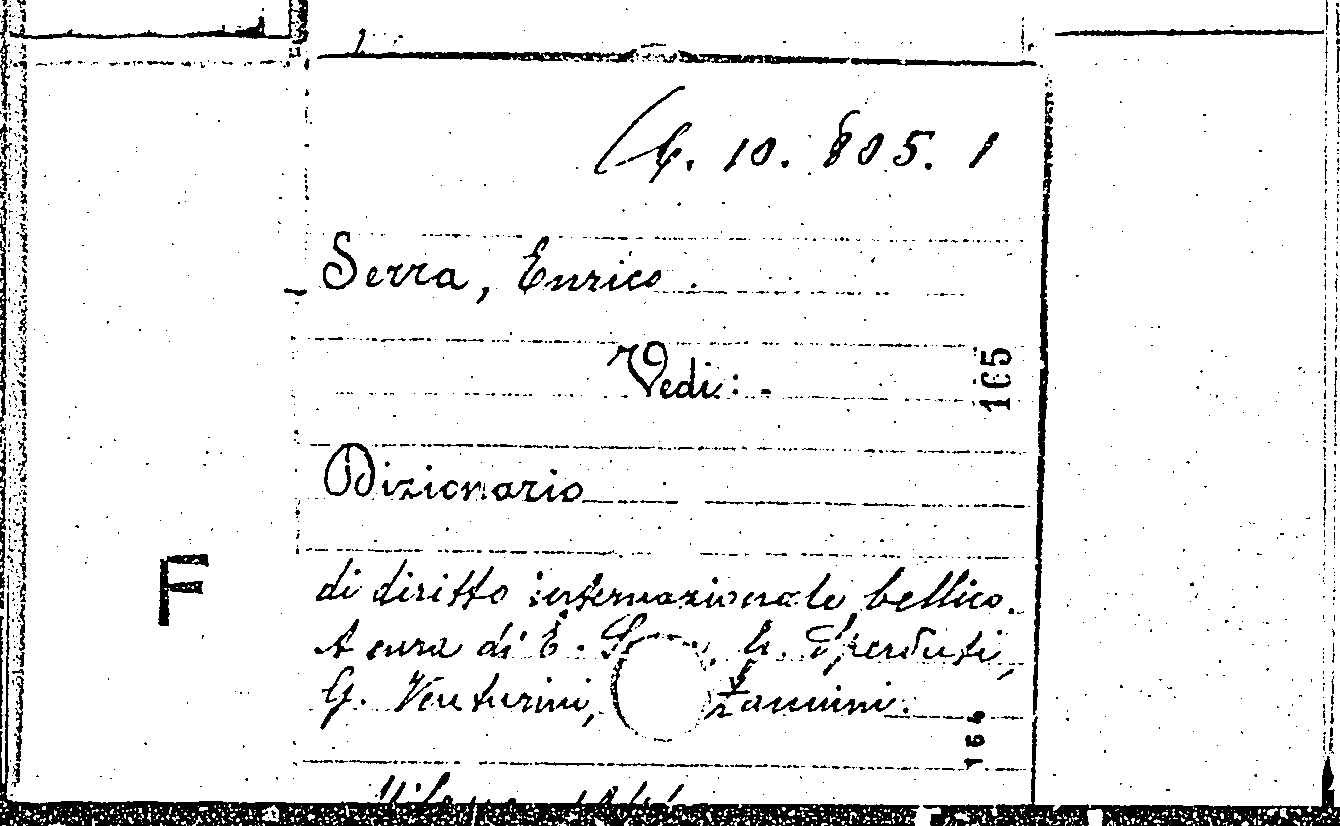 6. 10. 805. 1
Serra, Enrico.
Vedi: -
165
Dizionario
F
di diritto internazionale bellico.
A cura di E. G. Sperduti,
G. Venturini, Zannini.